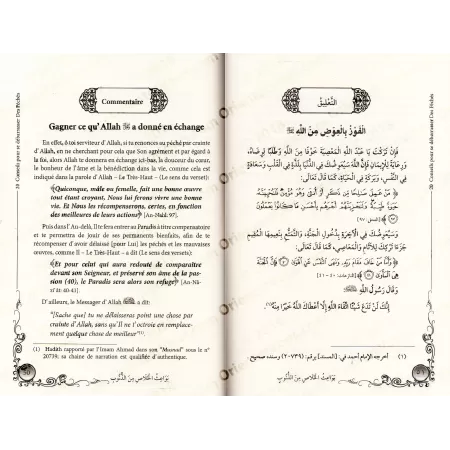 Commentaire
Gagner ce qu'Allah ﷻ a donné en échange
En effet, ô toi serviteur d'Allah, si tu renonces au péché par crainte
d'Allah, en ne cherchant que ce que Son agrément et par égard à
la foi, alors Allah te donnera en échange ici-bas, la douceur du cœur,
le bonheur de l'âme et la bénédiction dans la vie, comme cela est
indiqué dans la parole d'Allah – Le Très-Haut – (Le sens du verset):
﴾Quiconque, mâle ou femelle, fait une bonne œuvre
tout étant croyant, Nous lui ferons vivre une bonne
vie. Et Nous les récompenserons, certes, en fonction
des meilleures de leurs actions﴿ [An-Nahl: 97].
Puis dans l'Au-delà, Il te fera entrer au Paradis à titre compensatoire
et te permettra de jouir de ses permanents bienfaits, afin de te
récompenser d'avoir délaissé (pour Lui) les péchés et les mauvaises
œuvres, comme Il – Le Très-Haut – a dit (Le sens du verset):
﴾Et pour celui qui aura redouté de comparaître
devant son Seigneur, et préservé son âme de la pas-
sion (40), le Paradis sera alors son refuge﴿ [An-Nâ-
zi'ât 40-41].
D'ailleurs, le Messager d'Allah ﷺ a dit:
"[Sache que] tu ne délaisseras point une chose par
crainte d'Allah, sans qu'Il ne t'octroie en remplace-
ment quelque chose de meilleur"(1).
(1) Hadith rapporté par l'Imam Ahmad dans son "Musnad" sous le n°
20739; sa chaîne de narration est qualifiée d'authentique.
يواعث الخلاص من الذنوب
20 Conseils pour se débarrasser Des Péchés
التَّعْلِيقُ
الْفَوْزُ بِالْعِوَضِ مِنَ اللَّهِ ﷻ
فَإِنْ تَرَكْتَ يَا عَبْدَ اللَّهِ الْمَعْصِيَةَ خَوْفًا مِنَ اللَّهِ وَطَلَبًا لِرِضَاهُ،
وَرِعَايَةً لِلْإِيمَانِ فَإِنَّ اللَّهَ سَيُعَوِّضُكَ فِي الدُّنْيَا بِحَلَاوَةٍ فِي الْقَلْبِ، وَسَعَادَةٍ
فِي النَّفْسِ، وَبَرَكَةٍ فِي الْحَيَاةِ، كَمَا قَالَ تَعَالَى:
﴿ مَنْ عَمِلَ صَالِحًا مِنْ ذَكَرٍ أَوْ أُنْثَى وَهُوَ مُؤْمِنٌ فَلَنُحْيِيَنَّهُ
حَيَاةً طَيِّبَةً وَلَنَجْزِيَنَّهُمْ أَجْرَهُمْ بِأَحْسَنِ مَا كَانُوا يَعْمَلُونَ
﴾ [النحل: ٩٧]
وَسَيُعَوِّضُكَ فِي الْآخِرَةِ بِدُخُولِ الْجَنَّةِ، وَالتَّمَتُّعِ بِنَعِيمِهَا الْمُقِيمِ
جَزَاءَ تَرْكِكَ لِلْآثَامِ وَالْمَعَاصِي، كَمَا قَالَ تَعَالَى:
﴿ وَأَمَّا مَنْ خَافَ مَقَامَ رَبِّهِ وَنَهَى النَّفْسَ عَنِ الْهَوَى فَإِنَّ الْجَنَّةَ
هِيَ الْمَأْوَى ﴾ [النازعات: ٤٠ - ٤١]
وَقَالَ رَسُولُ اللَّهِ ﷺ:
إِنَّكَ لَنْ تَدَعَ شَيْئًا اتِّقَاءَ اللَّهِ إِلَّا أَعْطَاكَ اللَّهُ خَيْرًا مِنْهُ (١).
(١) أخرجه الإمام أحمد في: [المسند] برقم: (٢٠٧٣٩) وسنده صحيح